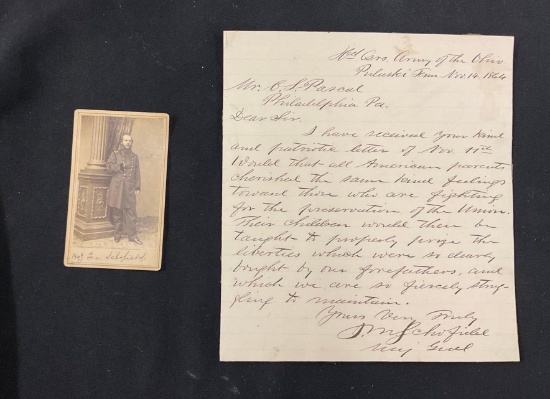 Maj Gen Schofield
Hd Qrs. Army of the Ohio
Pulaski Tenn Nov. 14. 1864
Mr. C. S. Pascal
Philadelphia Pa.
Dear Sir.
I have received your kind
and patriotic letter of Nov 11th
Would that all American parents
cherished the same kind feelings
toward those who are fighting
for the preservation of the Union.
Their children would then be
taught to properly prize the
liberties which were so dearly
bought by our forefathers, and
which we are so fiercely strug-
gling to maintain.
Yours Very Truly
J. M. Schofield
Maj Genl